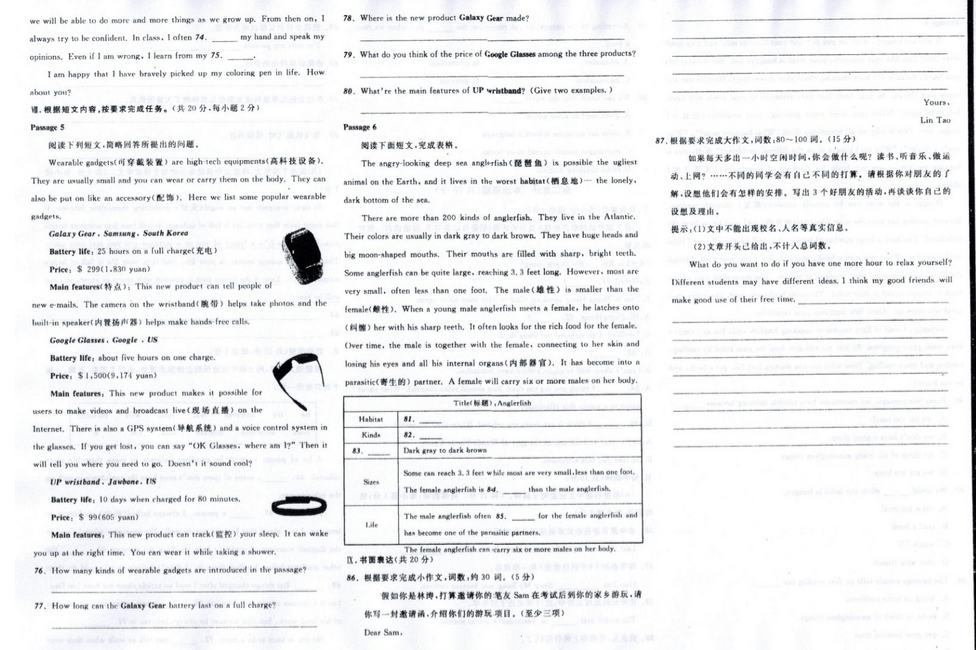 we will be able to do more and more things as we grow up. From then on, I
always try to be confident. In class, I often 74. ______ my hand and speak my
opinions. Even if I am wrong, I learn from my 75. ______.
I am happy that I have bravely picked up my coloring pen in life. How
about you?
Ⅷ. 根据短文内容,按要求完成任务。(共 20 分,每小题 2 分)
Passage 5
阅读下列短文,简略回答所提出的问题。
Wearable gadgets(可穿戴装置) are high-tech equipments(高科技设备).
They are usually small and you can wear or carry them on the body. They can
also be put on like an accessory(配饰). Here we list some popular wearable
gadgets.
Galaxy Gear, Samsung, South Korea
Battery life: 25 hours on a full charge(充电)
Price: $ 299(1,830 yuan)
Main features(特点): This new product can tell people of
new e-mails. The camera on the wristband(腕带) helps take photos and the
built-in speaker(内置扬声器) helps make hands-free calls.
Google Glasses, Google, US
Battery life: about five hours on one charge.
Price: $ 1,500(9,174 yuan)
Main features: This new product makes it possible for
users to make videos and broadcast live(现场直播) on the
Internet. There is also a GPS system(导航系统) and a voice control system in
the glasses. If you get lost, you can say "OK Glasses, where am I?" Then it
will tell you where you need to go. Doesn't it sound cool?
UP wristband, Jawbone, US
Battery life: 10 days when charged for 80 minutes.
Price: $ 99(605 yuan)
Main features: This new product can track(监控) your sleep. It can wake
you up at the right time. You can wear it while taking a shower.
76. How many kinds of wearable gadgets are introduced in the passage?
77. How long can the Galaxy Gear battery last on a full charge?
78. Where is the new product Galaxy Gear made?
79. What do you think of the price of Google Glasses among the three products?
80. What're the main features of UP wristband? (Give two examples. )
Passage 6
阅读下面短文,完成表格。
The angry-looking deep sea anglerfish(琵琶鱼) is possible the ugliest
animal on the Earth, and it lives in the worst habitat(栖息地)— the lonely,
dark bottom of the sea.
There are more than 200 kinds of anglerfish. They live in the Atlantic.
Their colors are usually in dark gray to dark brown. They have huge heads and
big moon-shaped mouths. Their mouths are filled with sharp, bright teeth.
Some anglerfish can be quite large, reaching 3.3 feet long. However, most are
very small, often less than one foot. The male(雄性) is smaller than the
female(雌性). When a young male anglerfish meets a female, he latches onto
(纠缠) her with his sharp teeth. It often looks for the rich food for the female.
Over time, the male is together with the female, connecting to her skin and
losing his eyes and all his internal organs(内部器官). It has become into a
parasitic(寄生的) partner. A female will carry six or more males on her body.
Title(标题): Anglerfish
Habitat 81. ______
Kinds 82. ______
83. ______ Dark gray to dark brown
Sizes
Some can reach 3.3 feet while most are very small, less than one foot.
The female anglerfish is 84. ______ than the male anglerfish.
Life
The male anglerfish often 85. ______ for the female anglerfish and
has become one of the parasitic partners.
The female anglerfish can carry six or more males on her body.
Ⅸ. 书面表达(共 20 分)
86. 根据要求完成小作文,词数:约 30 词。(5 分)
假如你是林涛,打算邀请你的笔友 Sam 在考试后到你的家乡游玩,请
你写一封邀请函,介绍你们的游玩项目。(至少三项)
Dear Sam,
Yours,
Lin Tao
87. 根据要求完成大作文,词数:80~100 词。(15 分)
如果每天多出一小时空闲时间,你会做什么呢? 读书、听音乐、做运
动、上网? ……不同的同学会有自己不同的打算。请根据你对朋友的了
解,设想他们会有怎样的安排。写出 3 个好朋友的活动,再谈谈你自己的
设想及理由。
提示:(1)文中不能出现校名、人名等真实信息。
(2)文章开头已给出,不计入总词数。
What do you want to do if you have one more hour to relax yourself?
Different students may have different ideas. I think my good friends will
make good use of their free time. ______